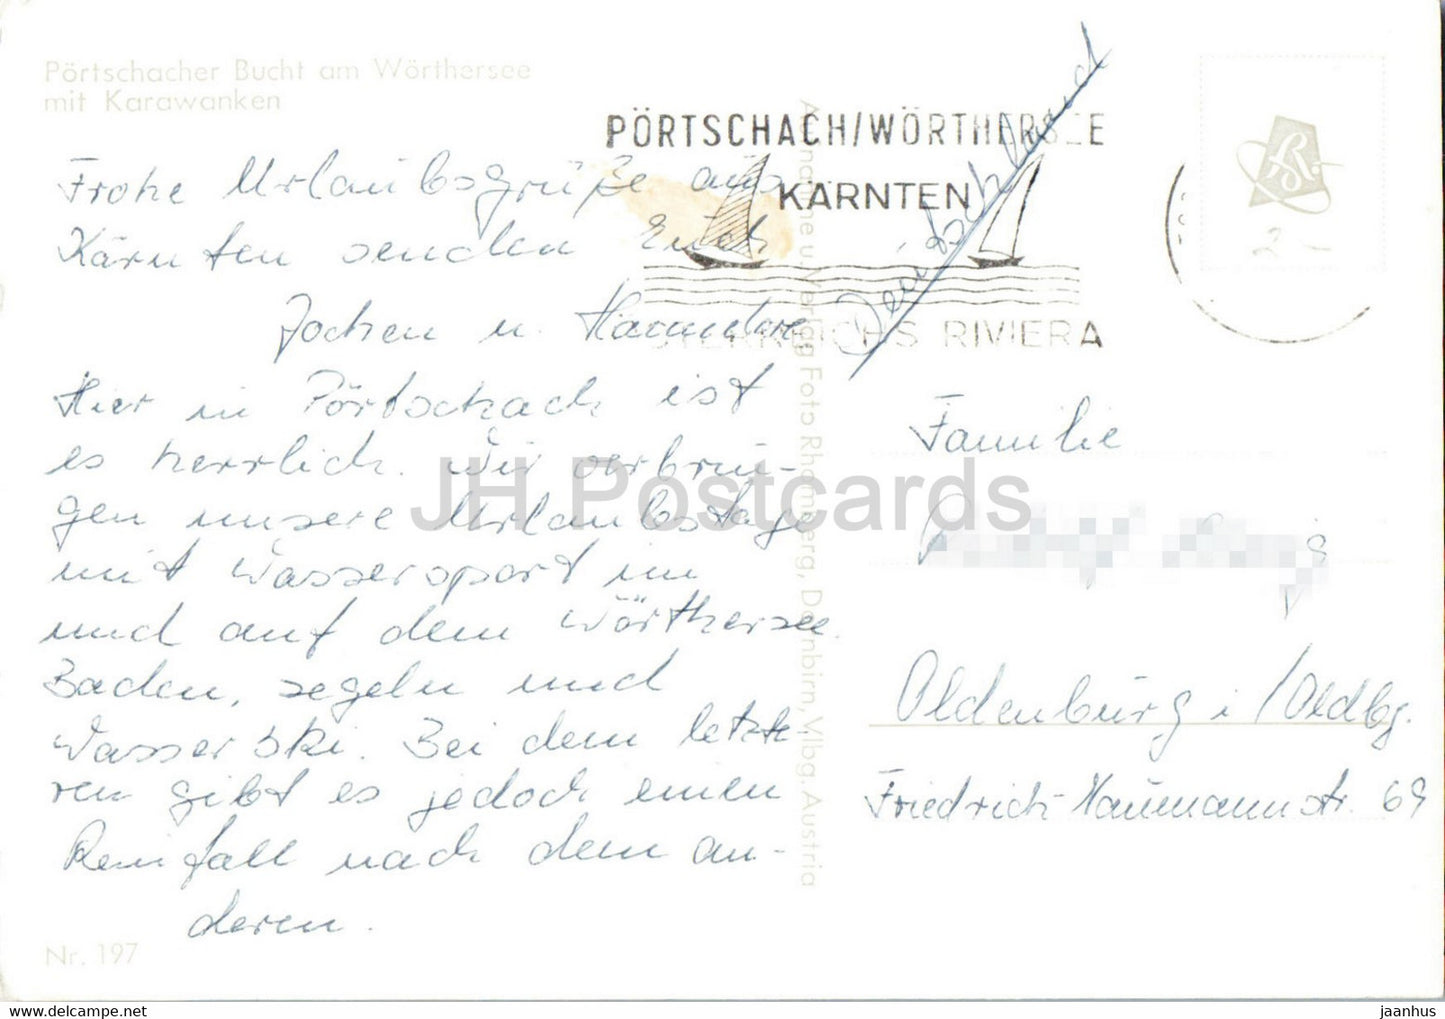 Pörtschacher Bucht am Wörthersee
mit Karawanken
PÖRTSCHACH/WÖRTHERSEE
KÄRNTEN
ÖSTERREICHS RIVIERA
Frohe Urlaubsgrüße aus
Kärnten senden Euch
Jochen u.
Hier in Pörtschach ist
es herrlich. Wir verbrin-
gen unsere Urlaubstage
mit Wassersport im
und auf dem Wörthersee.
Baden, segeln und
Wasserski. Bei dem letzte-
ren gibt es jedoch einen
Reinfall nach dem an-
deren.
Nr. 197
Aufnahme u. Verlag Foto Rhomberg, Dornbirn, Vlbg. Austria
Deutschland
2-
Familie
Oldenburg i/Oldbg.
Friedrich-Naumannstr. 69
JH Postcards
jaanhus